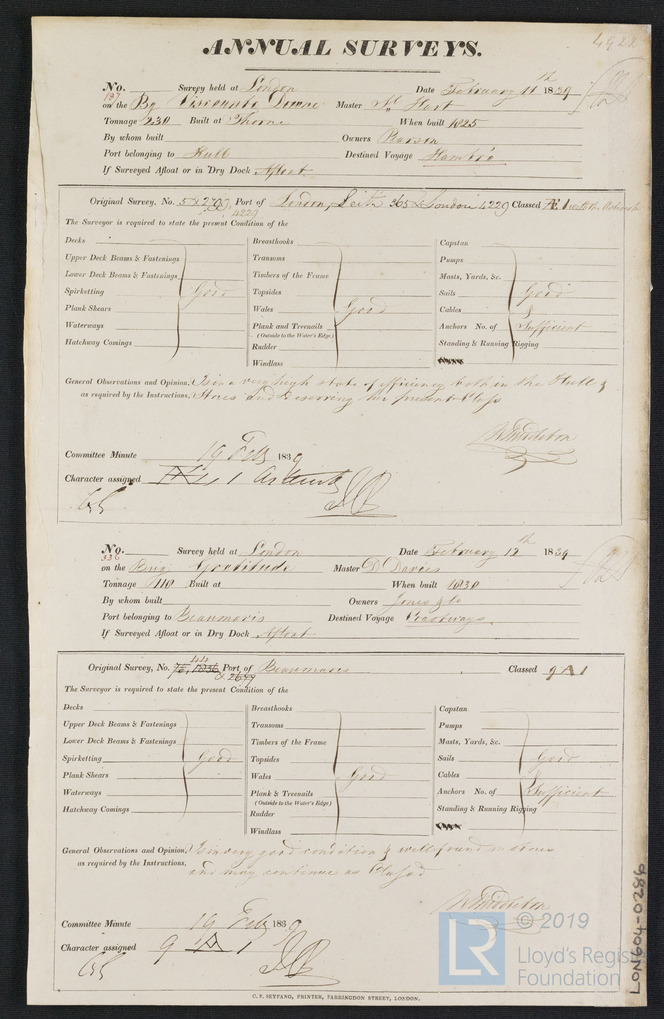 4922
ANNUAL SURVEYS.
No. Survey held at London Date February 11th 1839
197
on the Bg Viscounts Downe Master Hart
Tonnage 230 Built at Thorne When built 1825
By whom built Owners Pearson
Port belonging to Hull Destined Voyage Hambro
If Surveyed Afloat or in Dry Dock Afloat
Original Survey, No. Port of London, Leith 365 & London 4229 Classed Æ 1 with the Asterisk
4229
The Surveyor is required to state the present Condition of the
Decks Breasthooks Capstan
Upper Deck Beams & Fastenings Transoms Pumps
Lower Deck Beams & Fastenings Timbers of the Frame Masts, Yards, &c.
Spirketting Good Topsides Sails Good
Plank Shears Wales Good Cables &
Waterways Plank and Treenails Anchors No. of Sufficient
(Outside to the Water's Edge)
Hatchway Comings Rudder Standing & Running Rigging
Windlass
General Observations and Opinion, Is in a very high state of efficiency both in the Hull &
as required by the Instructions, Stores and Deserving her present Class
W Middleton
Committee Minute 19 Feby 1839
Character assigned 1 Asterisk
No. Survey held at London Date February 12th 1839
336
on the Brig Gratitude Master D Davies
Tonnage 110 Built at When built 1830
By whom built Owners Jones & Co
Port belonging to Beaumaris Destined Voyage Coastways
If Surveyed Afloat or in Dry Dock Afloat
44
Original Survey, No. Port of Beaumaris Classed 9 A 1
& 2699
The Surveyor is required to state the present Condition of the
Decks Breasthooks Capstan
Upper Deck Beams & Fastenings Transoms Pumps
Lower Deck Beams & Fastenings Timbers of the Frame Masts, Yards, &c.
Spirketting Good Topsides Sails Good
Plank Shears Wales Good Cables &
Waterways Plank & Treenails Anchors No. of Sufficient
(Outside to the Water's Edge)
Hatchway Comings Rudder Standing & Running Rigging
Windlass
General Observations and Opinion, Is in very good condition & well found in stores
as required by the Instructions, and may continue as Classed
W Middleton
Committee Minute 19 Feby 1839
Character assigned 9 A 1
C. F. SEYFANG, PRINTER, FARRINGDON STREET, LONDON.
LON604-0286
LR © 2019
Lloyd's Register
Foundation